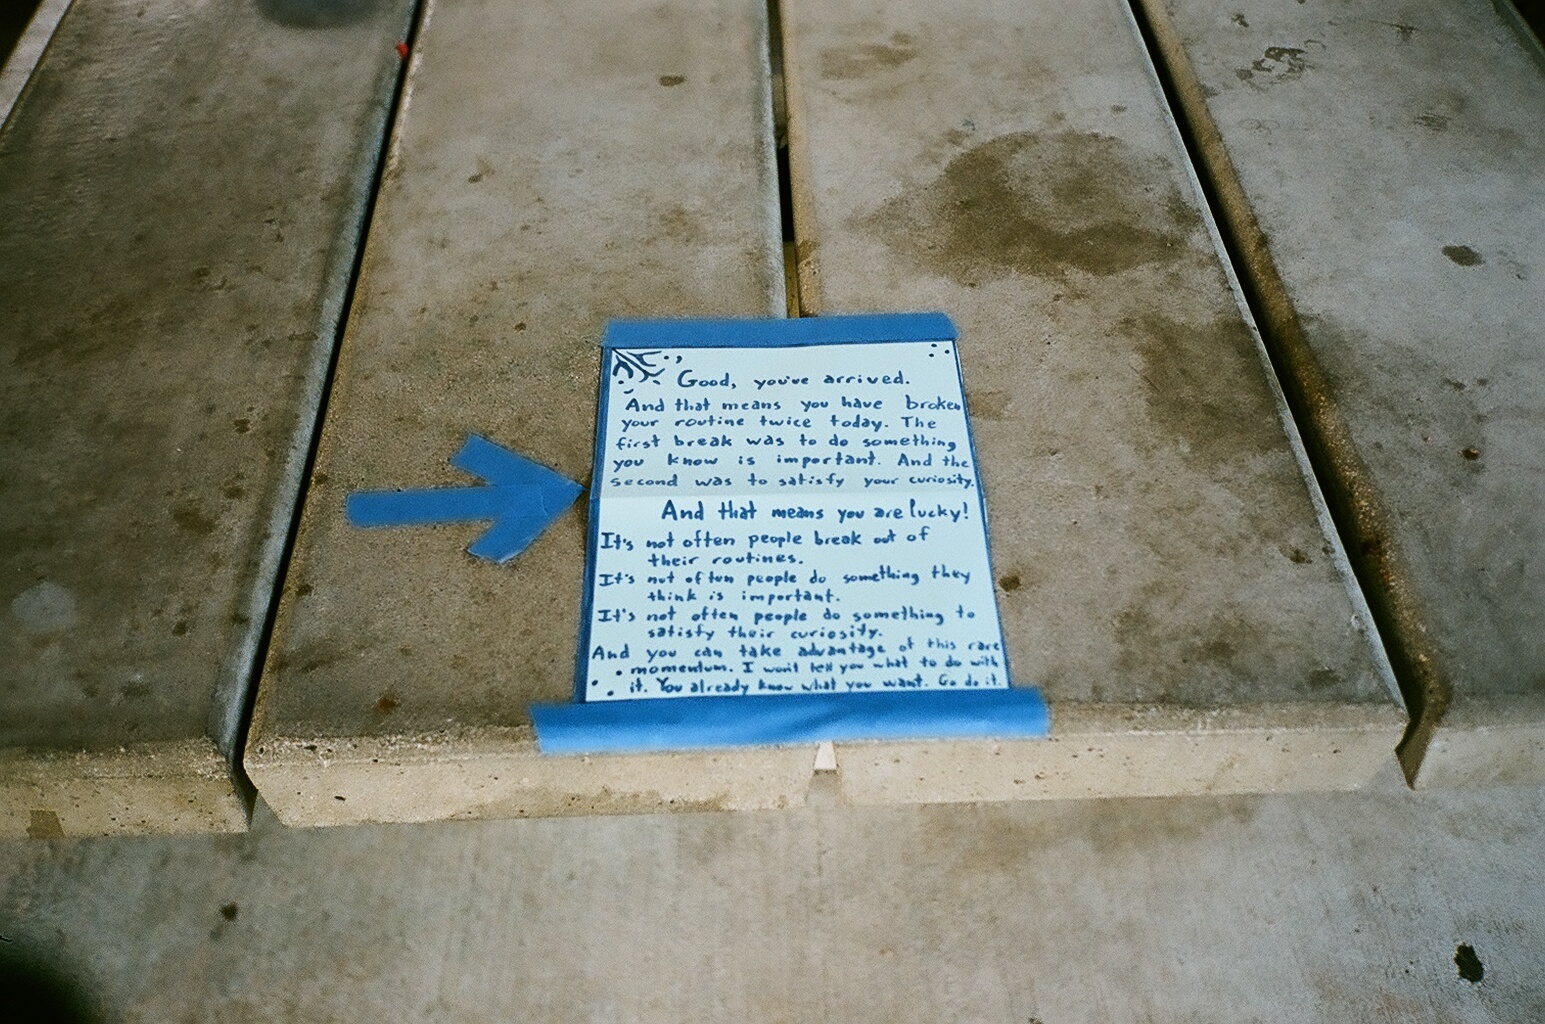 Good, you've arrived.
And that means you have broken
your routine twice today. The
first break was to do something
you know is important. And the
second was to satisfy your curiosity.
And that means you are lucky!
It's not often people break out of
their routines.
It's not often people do something they
think is important.
It's not often people do something to
satisfy their curiosity.
And you can take advantage of this rare
momentum. I won't tell you what to do with
it. You already know what you want. Go do it.